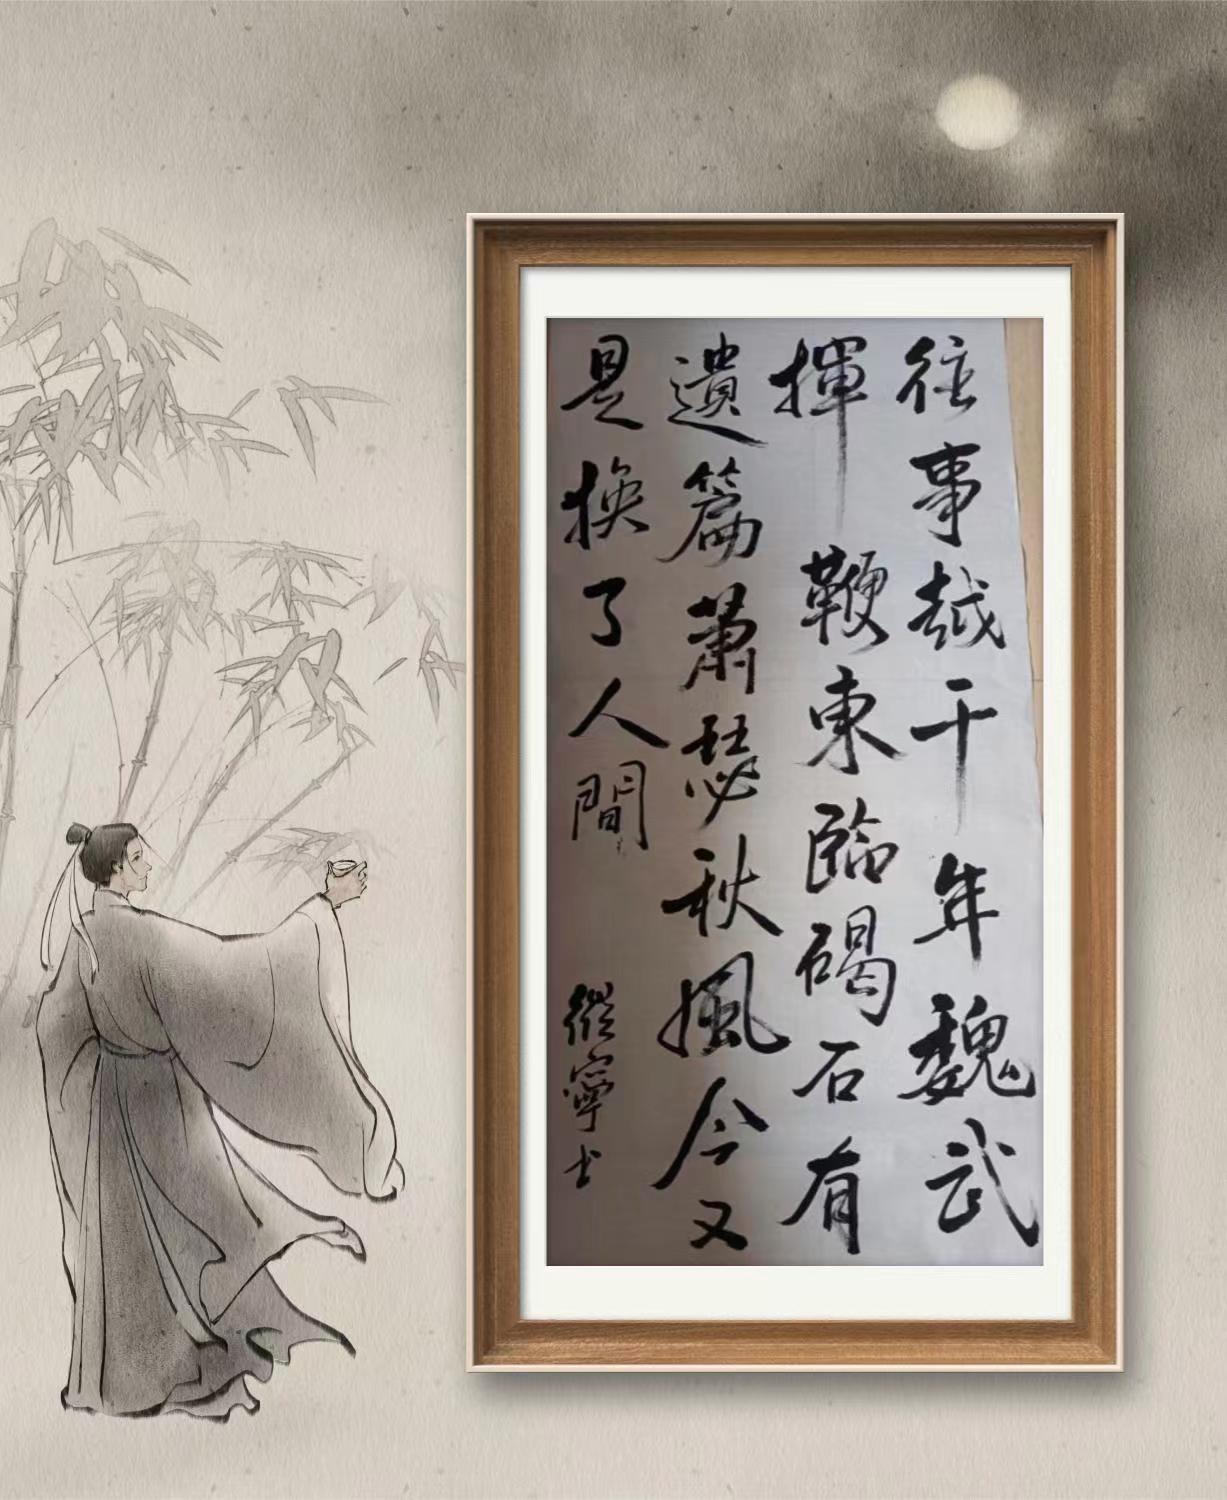 往事越千年魏武
揮鞭東臨碣石有
遺篇蕭瑟秋風今又
是換了人間